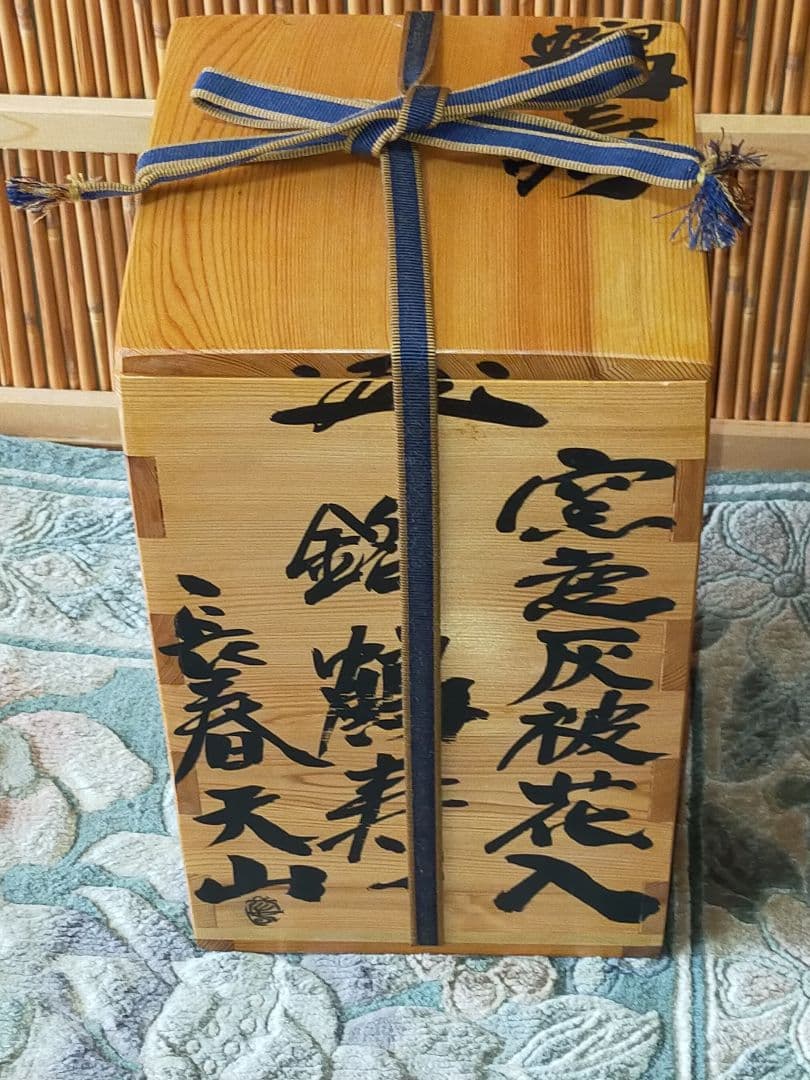 窯変灰被花入
銘 鶴寿
長春天山